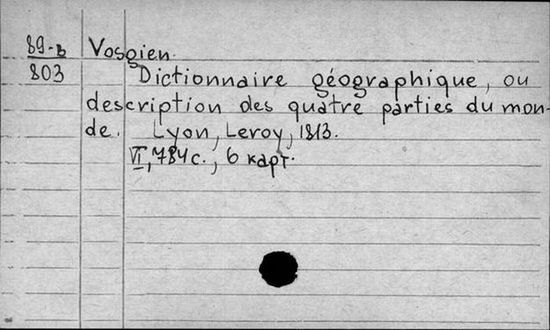 89-в Vosgien.
803 Dictionnaire géographique, ou
description des quatre parties du mon-
de. Lyon, Leroy, 1813.
VI, 784 с., 6 карт.